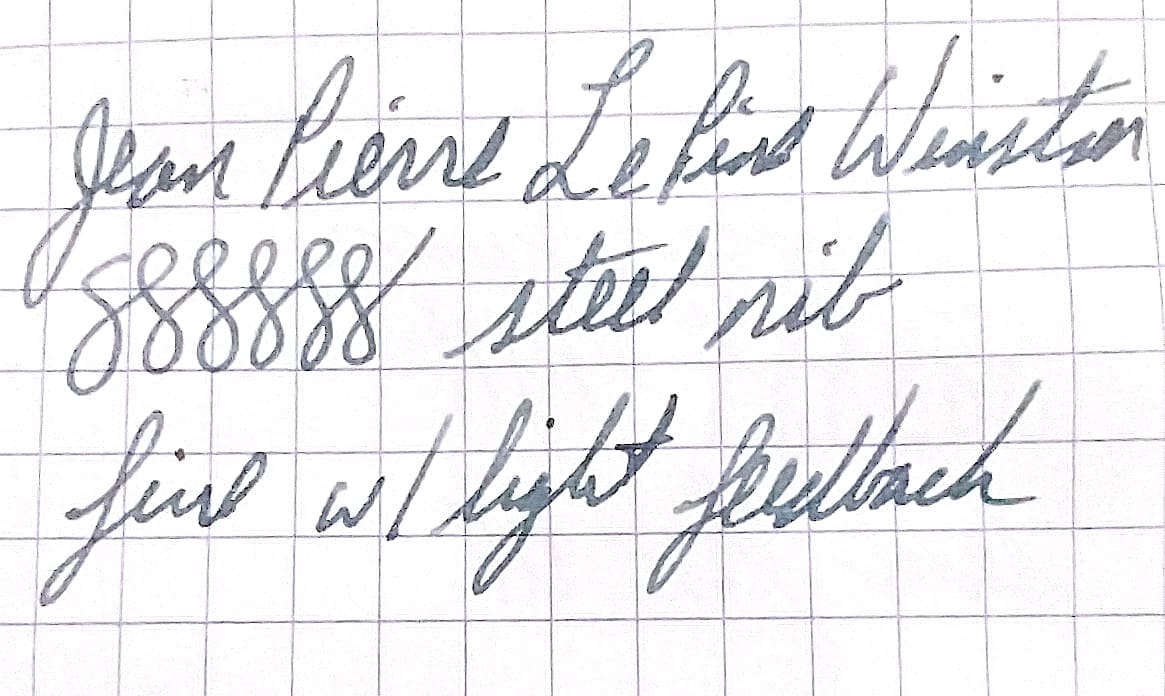 Jean Pierre LePine Winston
888888 steel nib
fine w/ light feedback